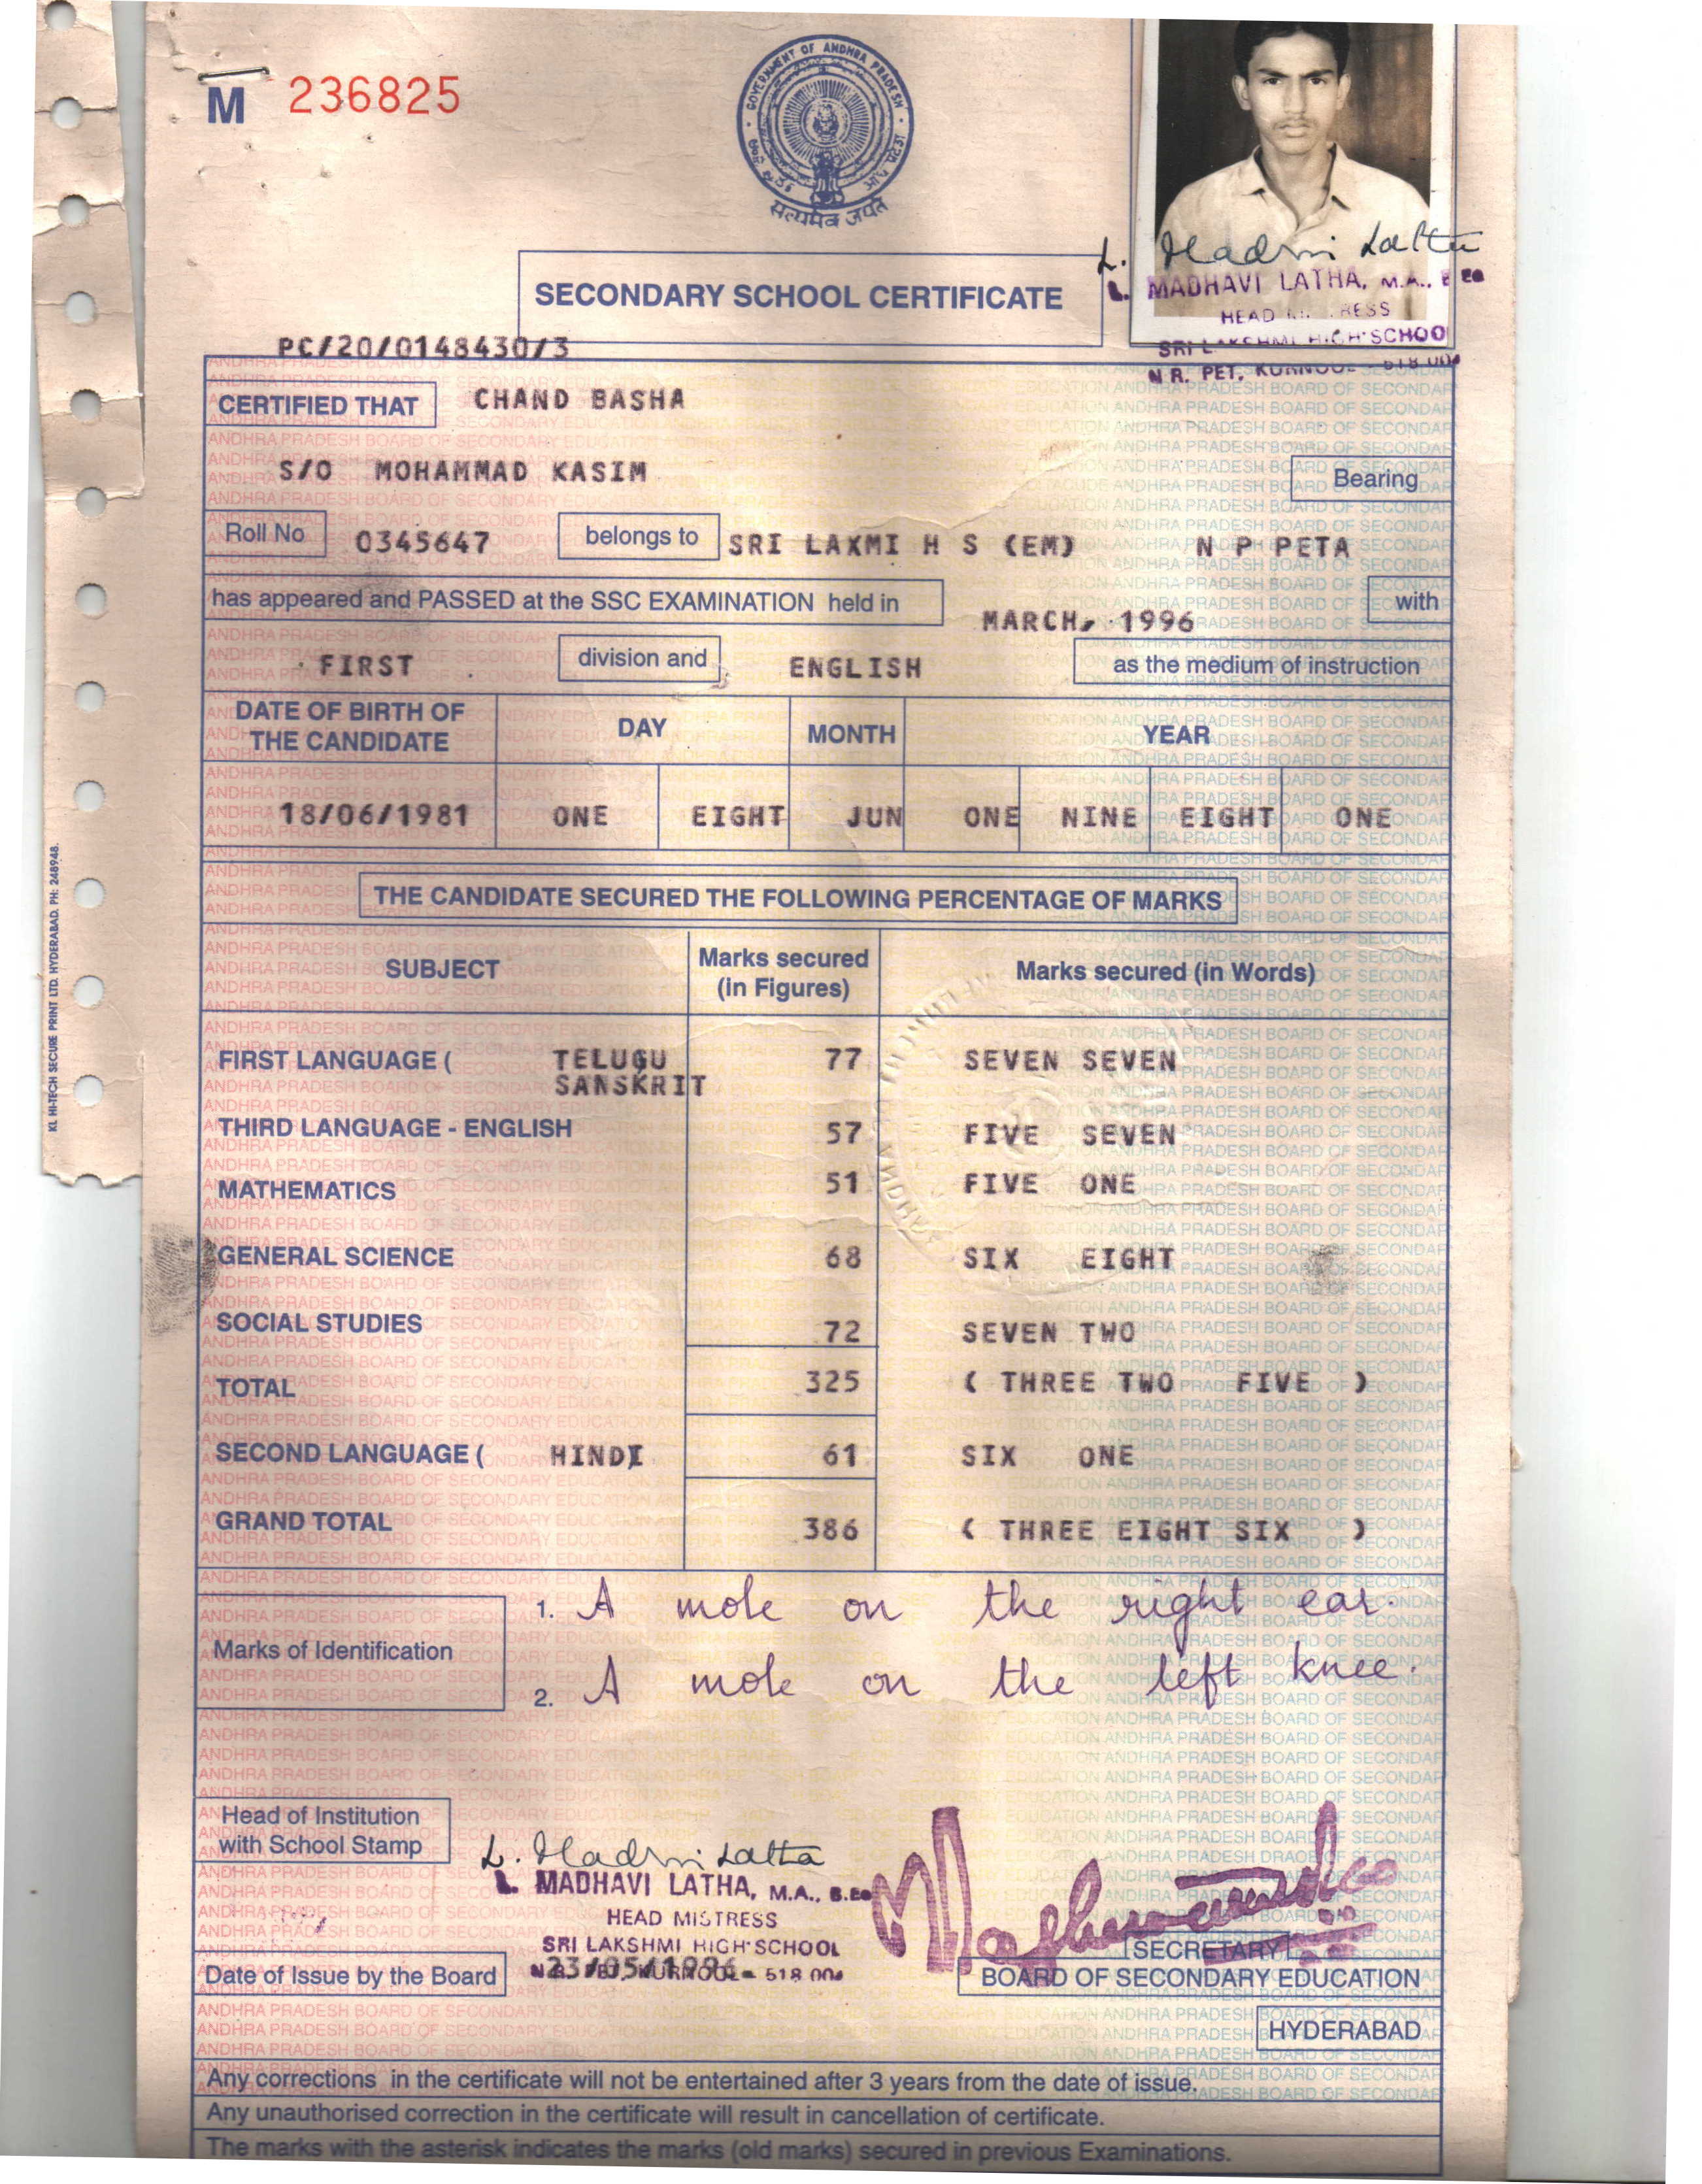 M 236825
GOVERNMENT OF ANDHRA PRADESH
सत्यमेव जयते
SECONDARY SCHOOL CERTIFICATE
L. MADHAVI LATHA, M.A.,
HEAD
SRI LAKSHMI HIGH SCHOO
N R. PET, KURNOOL
PC/20/0148430/3
CERTIFIED THAT CHAND BASHA
S/O MOHAMMAD KASIM Bearing
Roll No 0345647 belongs to SRI LAXMI H S (EM) N P PETA
has appeared and PASSED at the SSC EXAMINATION held in MARCH, 1996 with
FIRST division and ENGLISH as the medium of instruction
DATE OF BIRTH OF THE CANDIDATE DAY MONTH YEAR
18/06/1981 ONE EIGHT JUN ONE NINE EIGHT ONE
THE CANDIDATE SECURED THE FOLLOWING PERCENTAGE OF MARKS
SUBJECT Marks secured (in Figures) Marks secured (in Words)
FIRST LANGUAGE ( TELUGU 77 SEVEN SEVEN
SANSKRIT
THIRD LANGUAGE - ENGLISH 57 FIVE SEVEN
MATHEMATICS 51 FIVE ONE
GENERAL SCIENCE 68 SIX EIGHT
SOCIAL STUDIES 72 SEVEN TWO
TOTAL 325 ( THREE TWO FIVE )
SECOND LANGUAGE ( HINDI 61 SIX ONE
GRAND TOTAL 386 ( THREE EIGHT SIX )
Marks of Identification
1. A mole on the right ear.
2. A mole on the left knee.
Head of Institution
with School Stamp
L. MADHAVI LATHA, M.A., B.Ed
HEAD MISTRESS
SRI LAKSHMI HIGH SCHOOL
Date of Issue by the Board 23/05/1996
SECRETARY
BOARD OF SECONDARY EDUCATION
HYDERABAD
Any corrections in the certificate will not be entertained after 3 years from the date of issue.
Any unauthorised correction in the certificate will result in cancellation of certificate.
The marks with the asterisk indicates the marks (old marks) secured in previous Examinations.
KL HI-TECH SECURE PRINT LTD. HYDERABAD. PH: 248948.